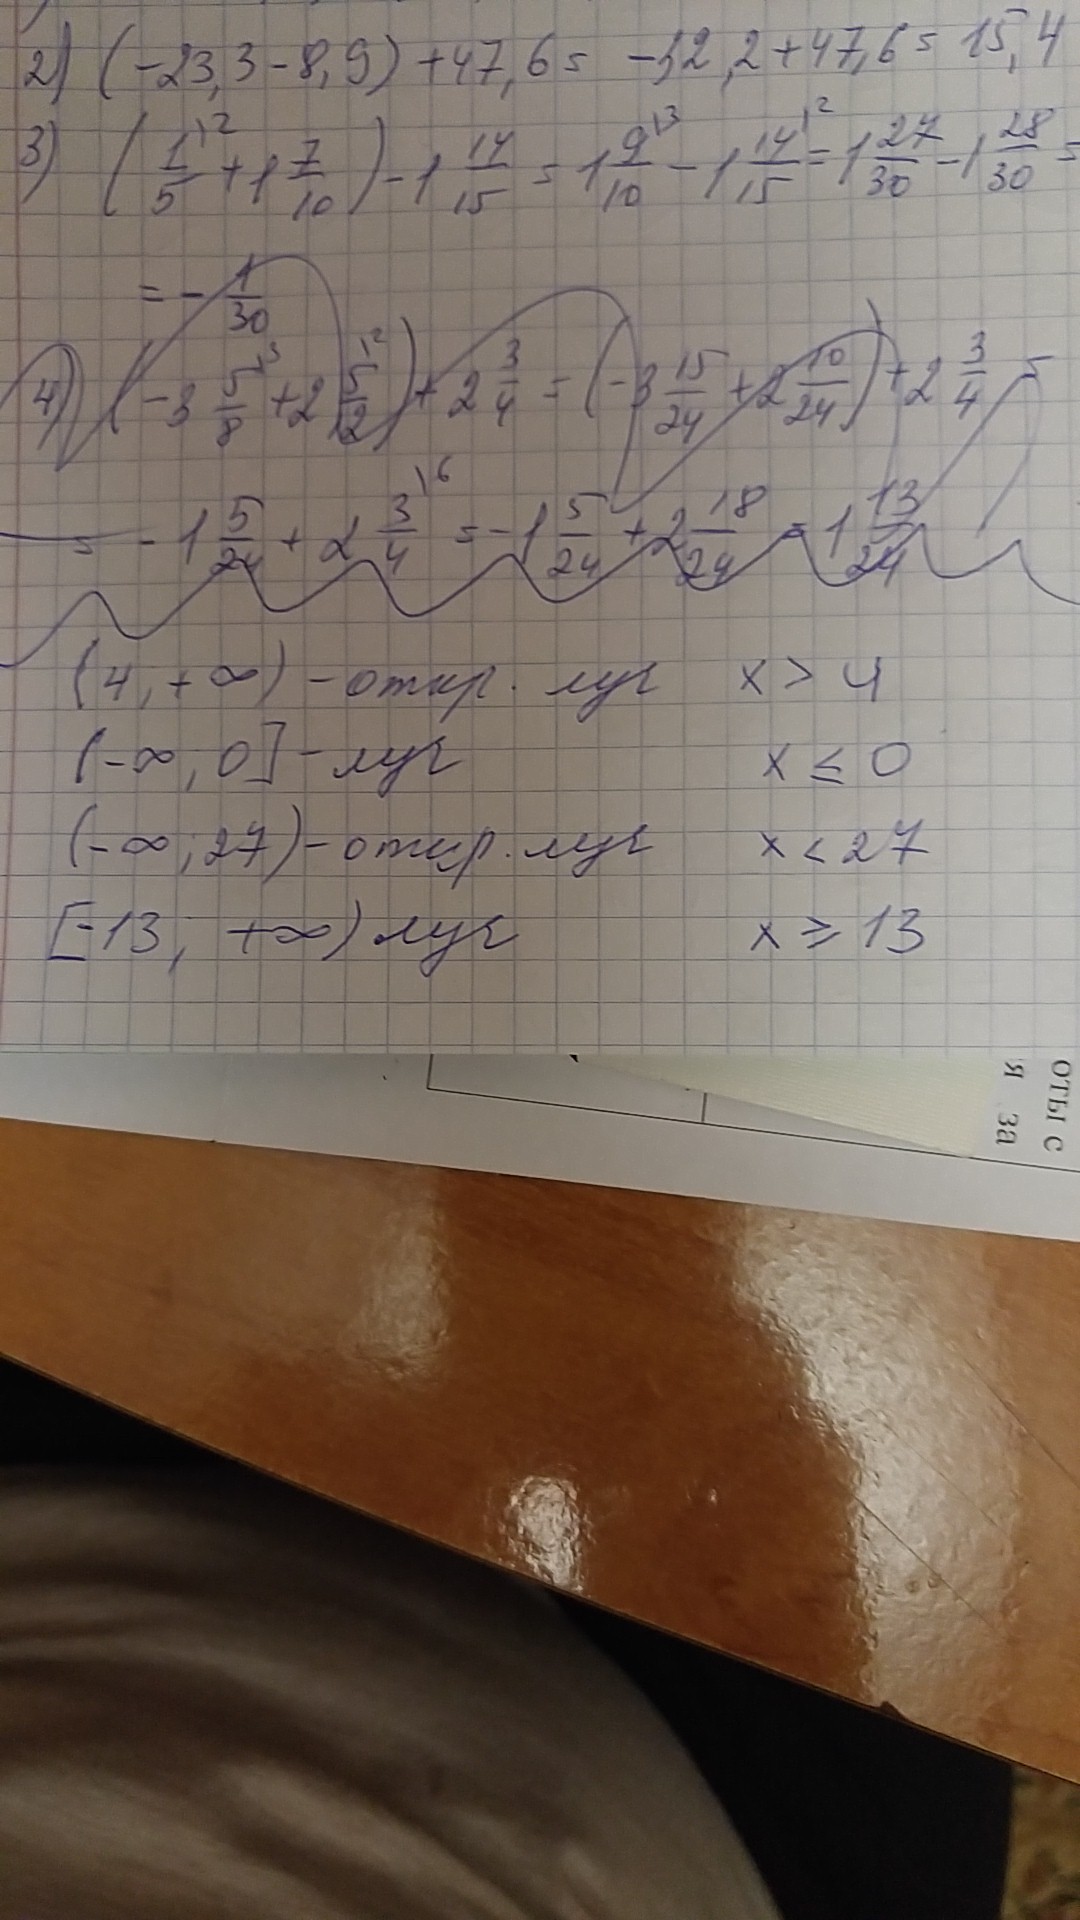 2) (-23,3-8,9)+47,6= -32,2+47,6= 15,4
3) (1\2/5+1 7/10)-1 14/15 = 1 9\3/10 - 1 14\2/15 = 1 27/30 - 1 28/30 =
= - 1/30
4) (-3 5\3/8 +2 5\2/12)+2 3/4 = (-3 15/24 +2 10/24)+2 3/4 =
= -1 5/24 + 2 3\6/4 = -1 5/24 + 2 18/24 = 1 13/24
(4,+∞) - откр. луч x > 4
(-∞; 0] - луч x ≤ 0
(-∞; 27) - откр. луч x < 27
[-13; +∞) луч x ≥ 13
оты с
я за